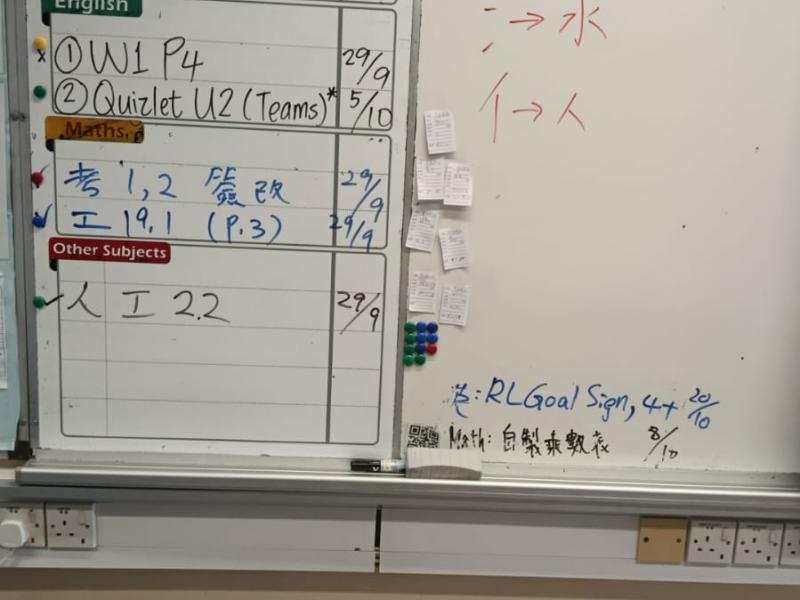 English
① W1 P4 29/9
② Quizlet U2 (Teams)* 5/10
Maths
考 1,2 簽改 29/9
工 19.1 (P.3) 29/9
Other Subjects
人 工 2.2 29/9
氵→ 水
亻→ 人
: RL Goal Sign, 4+ 20/10
Math: 自製乘數表 8/10